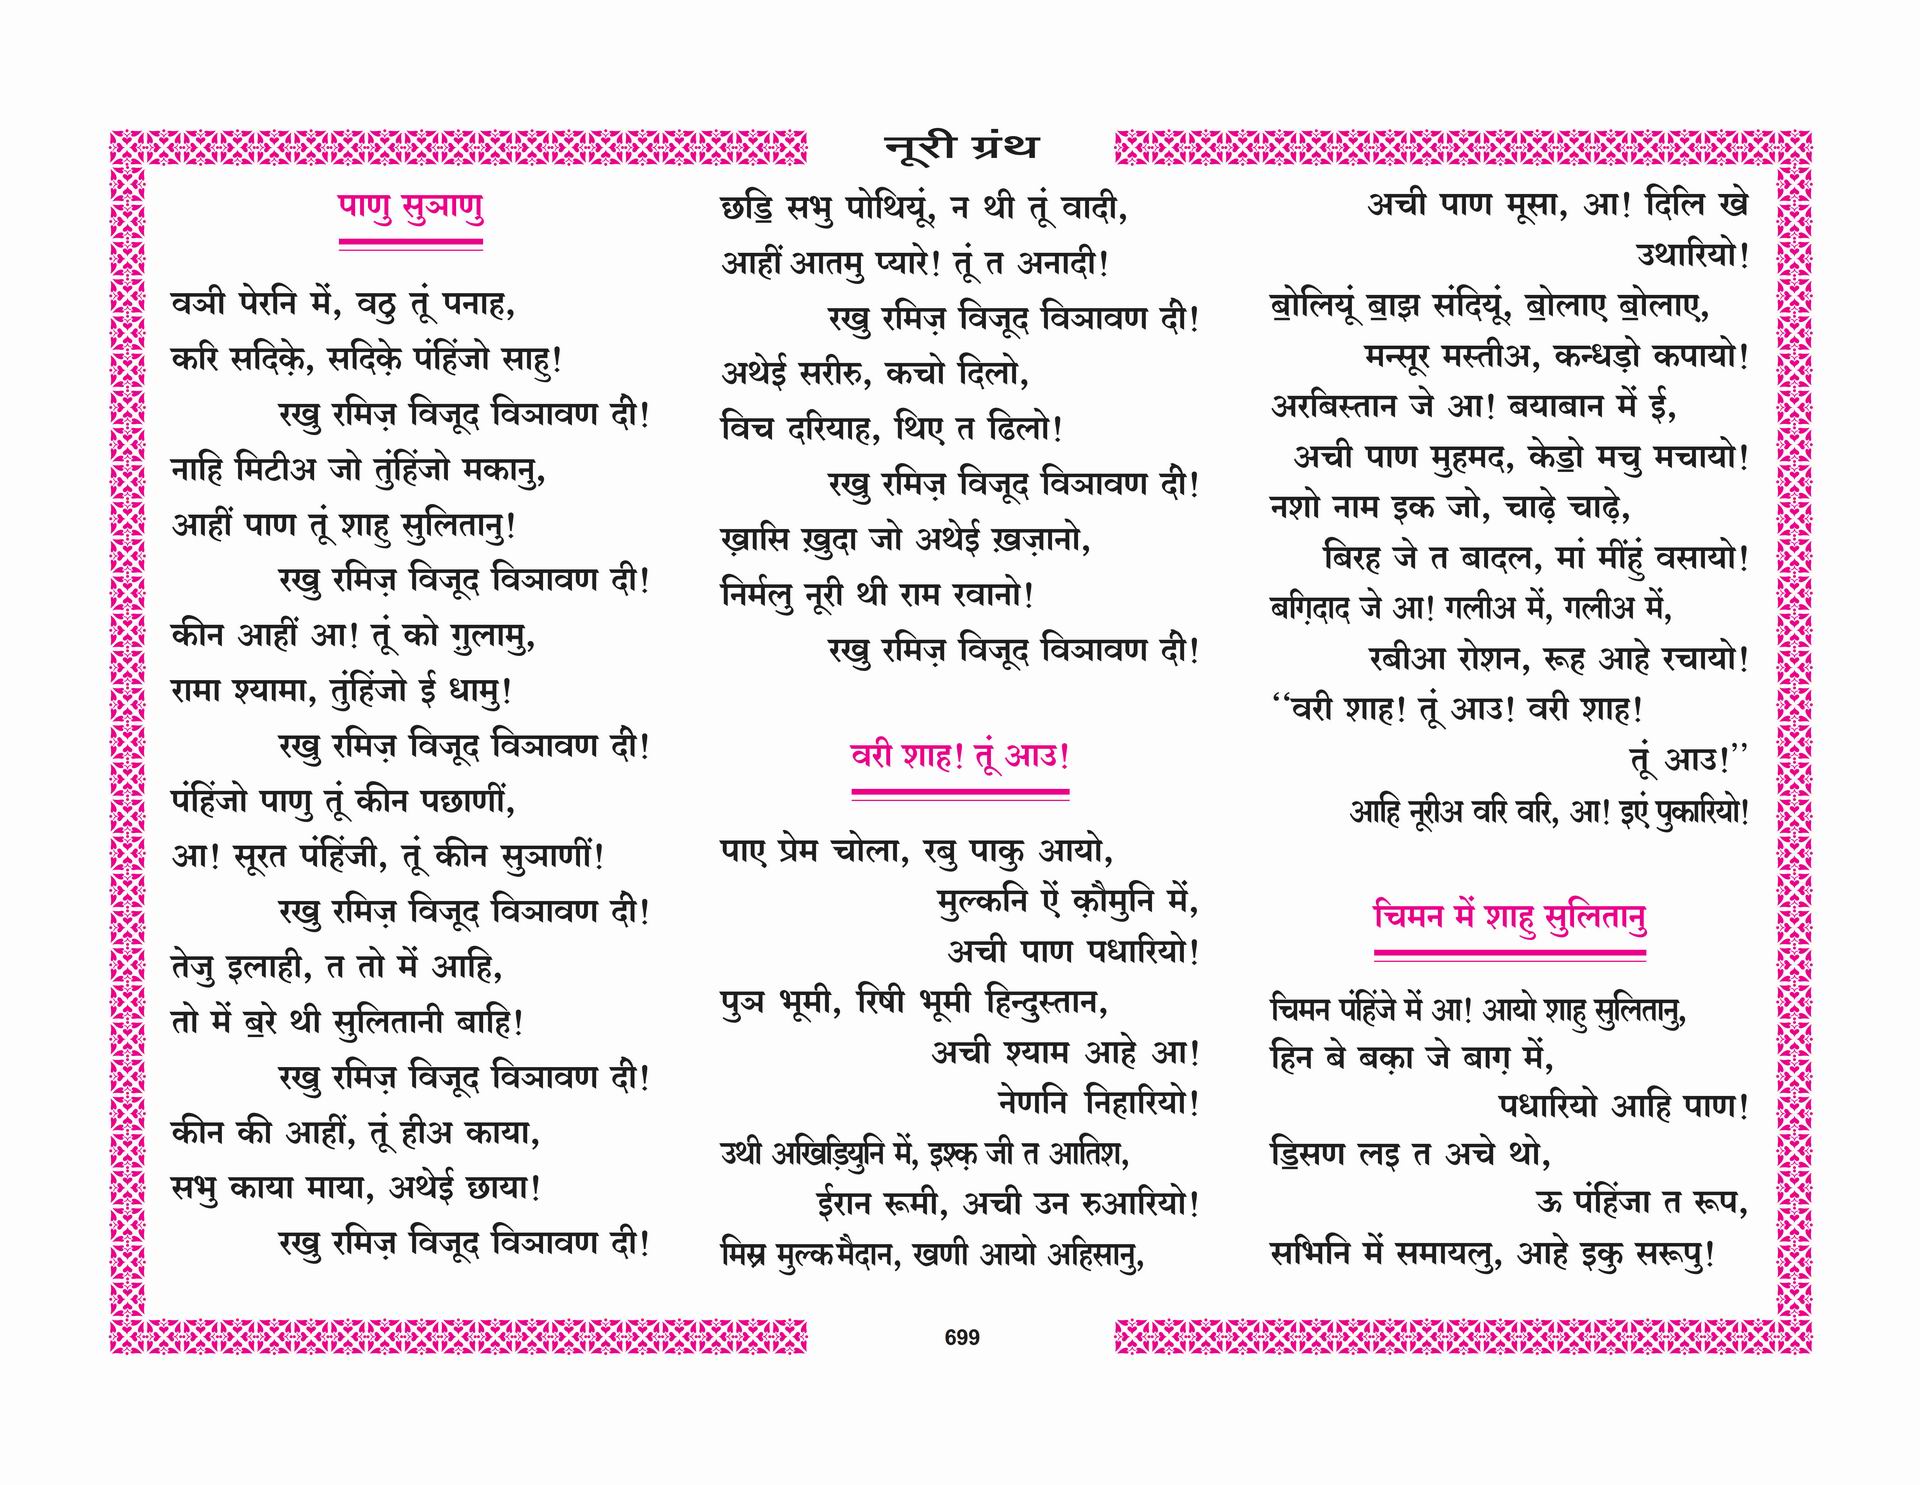 नूरी ग्रंथ
पाणु सुञाणु
वञी पेरनि में, वठु तूं पनाह,
करि सदिक़े, सदिक़े पंहिंजो साहु!
रखु रमिज़ विजूद विञावण दी!
नाहि मिटीअ जो तुंहिंजो मकानु,
आहीं पाण तूं शाहु सुलितानु!
रखु रमिज़ विजूद विञावण दी!
कीन आहीं आ! तूं को गु़लामु,
रामा श्यामा, तुंहिंजो ई धामु!
रखु रमिज़ विजूद विञावण दी!
पंहिंजो पाणु तूं कीन पछाणीं,
आ! सूरत पंहिंजी, तूं कीन सुञाणीं!
रखु रमिज़ विजूद विञावण दी!
तेजु इलाही, त तो में आहि,
तो में ॿरे थी सुलितानी बाहि!
रखु रमिज़ विजूद विञावण दी!
कीन की आहीं, तूं हीअ काया,
सभु काया माया, अथेई छाया!
रखु रमिज़ विजूद विञावण दी!
छॾि सभु पोथियूं, न थी तूं वादी,
आहीं आतमु प्यारे! तूं त अनादी!
रखु रमिज़ विजूद विञावण दी!
अथेई सरीरु, कचो दिलो,
विच दरियाह, थिए त ढिलो!
रखु रमिज़ विजूद विञावण दी!
ख़ासि ख़ुदा जो अथेई ख़ज़ानो,
निर्मलु नूरी थी राम रवानो!
रखु रमिज़ विजूद विञावण दी!
वरी शाह! तूं आउ!
पाए प्रेम चोला, रबु पाकु आयो,
मुल्कनि ऐं क़ौमुनि में,
अची पाण पधारियो!
पुञ भूमी, रिषी भूमी हिन्दुस्तान,
अची श्याम आहे आ!
नेणनि निहारियो!
उथी अखिड़ियुनि में, इश्क़ जी त आतिश,
ईरान रूमी, अची उन रुआरियो!
मिस्र मुल्क मैदान, खणी आयो अहिसानु,
अची पाण मूसा, आ! दिलि खे
उथारियो!
ॿोलियूं ॿाझ संदियूं, ॿोलाए ॿोलाए,
मन्सूर मस्तीअ, कन्धड़ो कपायो!
अरबिस्तान जे आ! बयाबान में ई,
अची पाण मुहमद, केॾो मचु मचायो!
नशो नाम इक जो, चाढ़े चाढ़े,
बिरह जे त बादल, मां मींहुं वसायो!
बग़िदाद जे आ! गलीअ में, गलीअ में,
रबीआ रोशन, रूह आहे रचायो!
“वरी शाह! तूं आउ! वरी शाह!
तूं आउ!”
आहि नूरीअ वरि वरि, आ! इएं पुकारियो!
चिमन में शाहु सुलितानु
चिमन पंहिंजे में आ! आयो शाहु सुलितानु,
हिन बे बक़ा जे बाग़ में,
पधारियो आहि पाण!
ॾिसण लइ त अचे थो,
ऊ पंहिंजा त रूप,
सभिनि में समायलु, आहे इकु सरूपु!
699